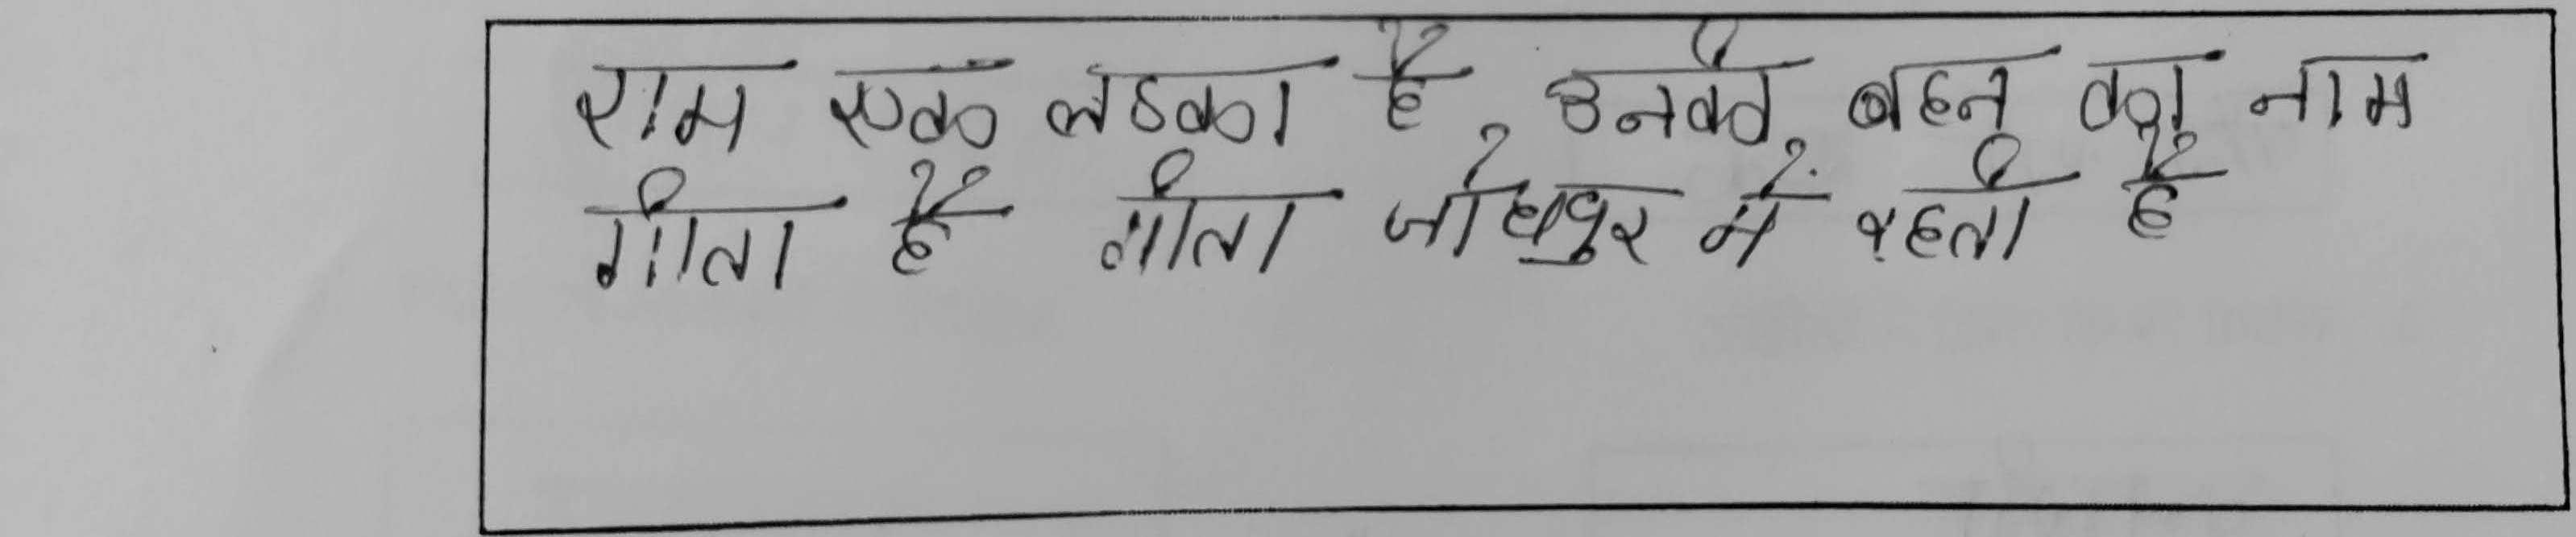 राम एक लडका है, उनकी बहन का नाम
गीता है गीता जोधपुर में रहती है